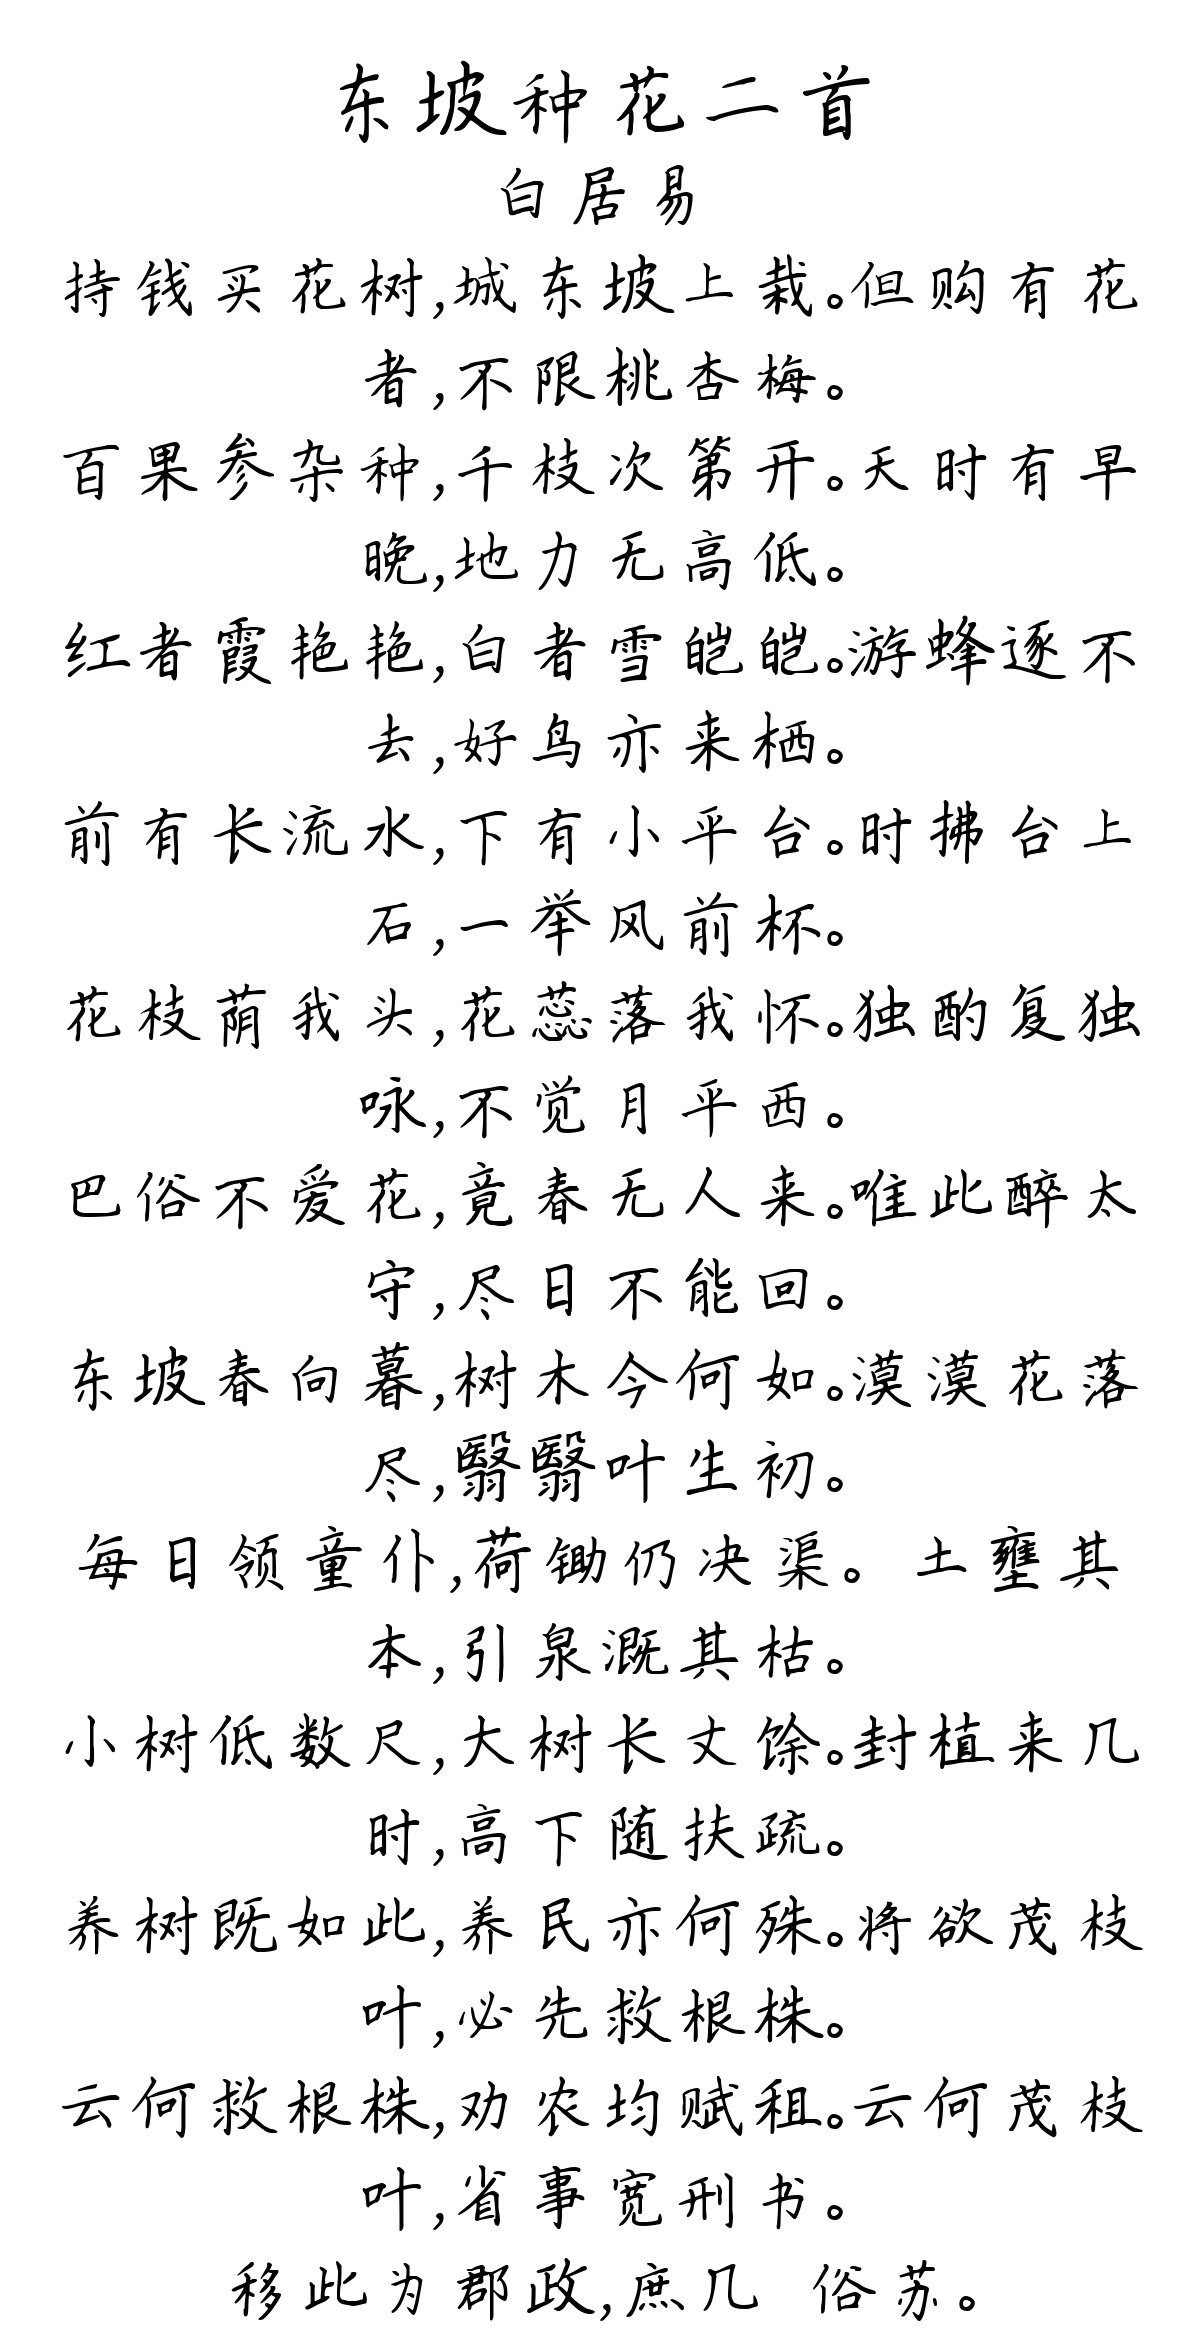 东坡种花二首
白居易
持钱买花树,城东坡上栽。但购有花
者,不限桃杏梅。
百果参杂种,千枝次第开。天时有早
晚,地力无高低。
红者霞艳艳,白者雪皑皑。游蜂逐不
去,好鸟亦来栖。
前有长流水,下有小平台。时拂台上
石,一举风前杯。
花枝荫我头,花蕊落我怀。独酌复独
咏,不觉月平西。
巴俗不爱花,竟春无人来。唯此醉太
守,尽日不能回。
东坡春向暮,树木今何如。漠漠花落
尽,翳翳叶生初。
每日领童仆,荷锄仍决渠。土壅其
本,引泉溉其枯。
小树低数尺,大树长丈馀。封植来几
时,高下随扶疏。
养树既如此,养民亦何殊。将欲茂枝
叶,必先救根株。
云何救根株,劝农均赋租。云何茂枝
叶,省事宽刑书。
移此为郡政,庶几 俗苏。